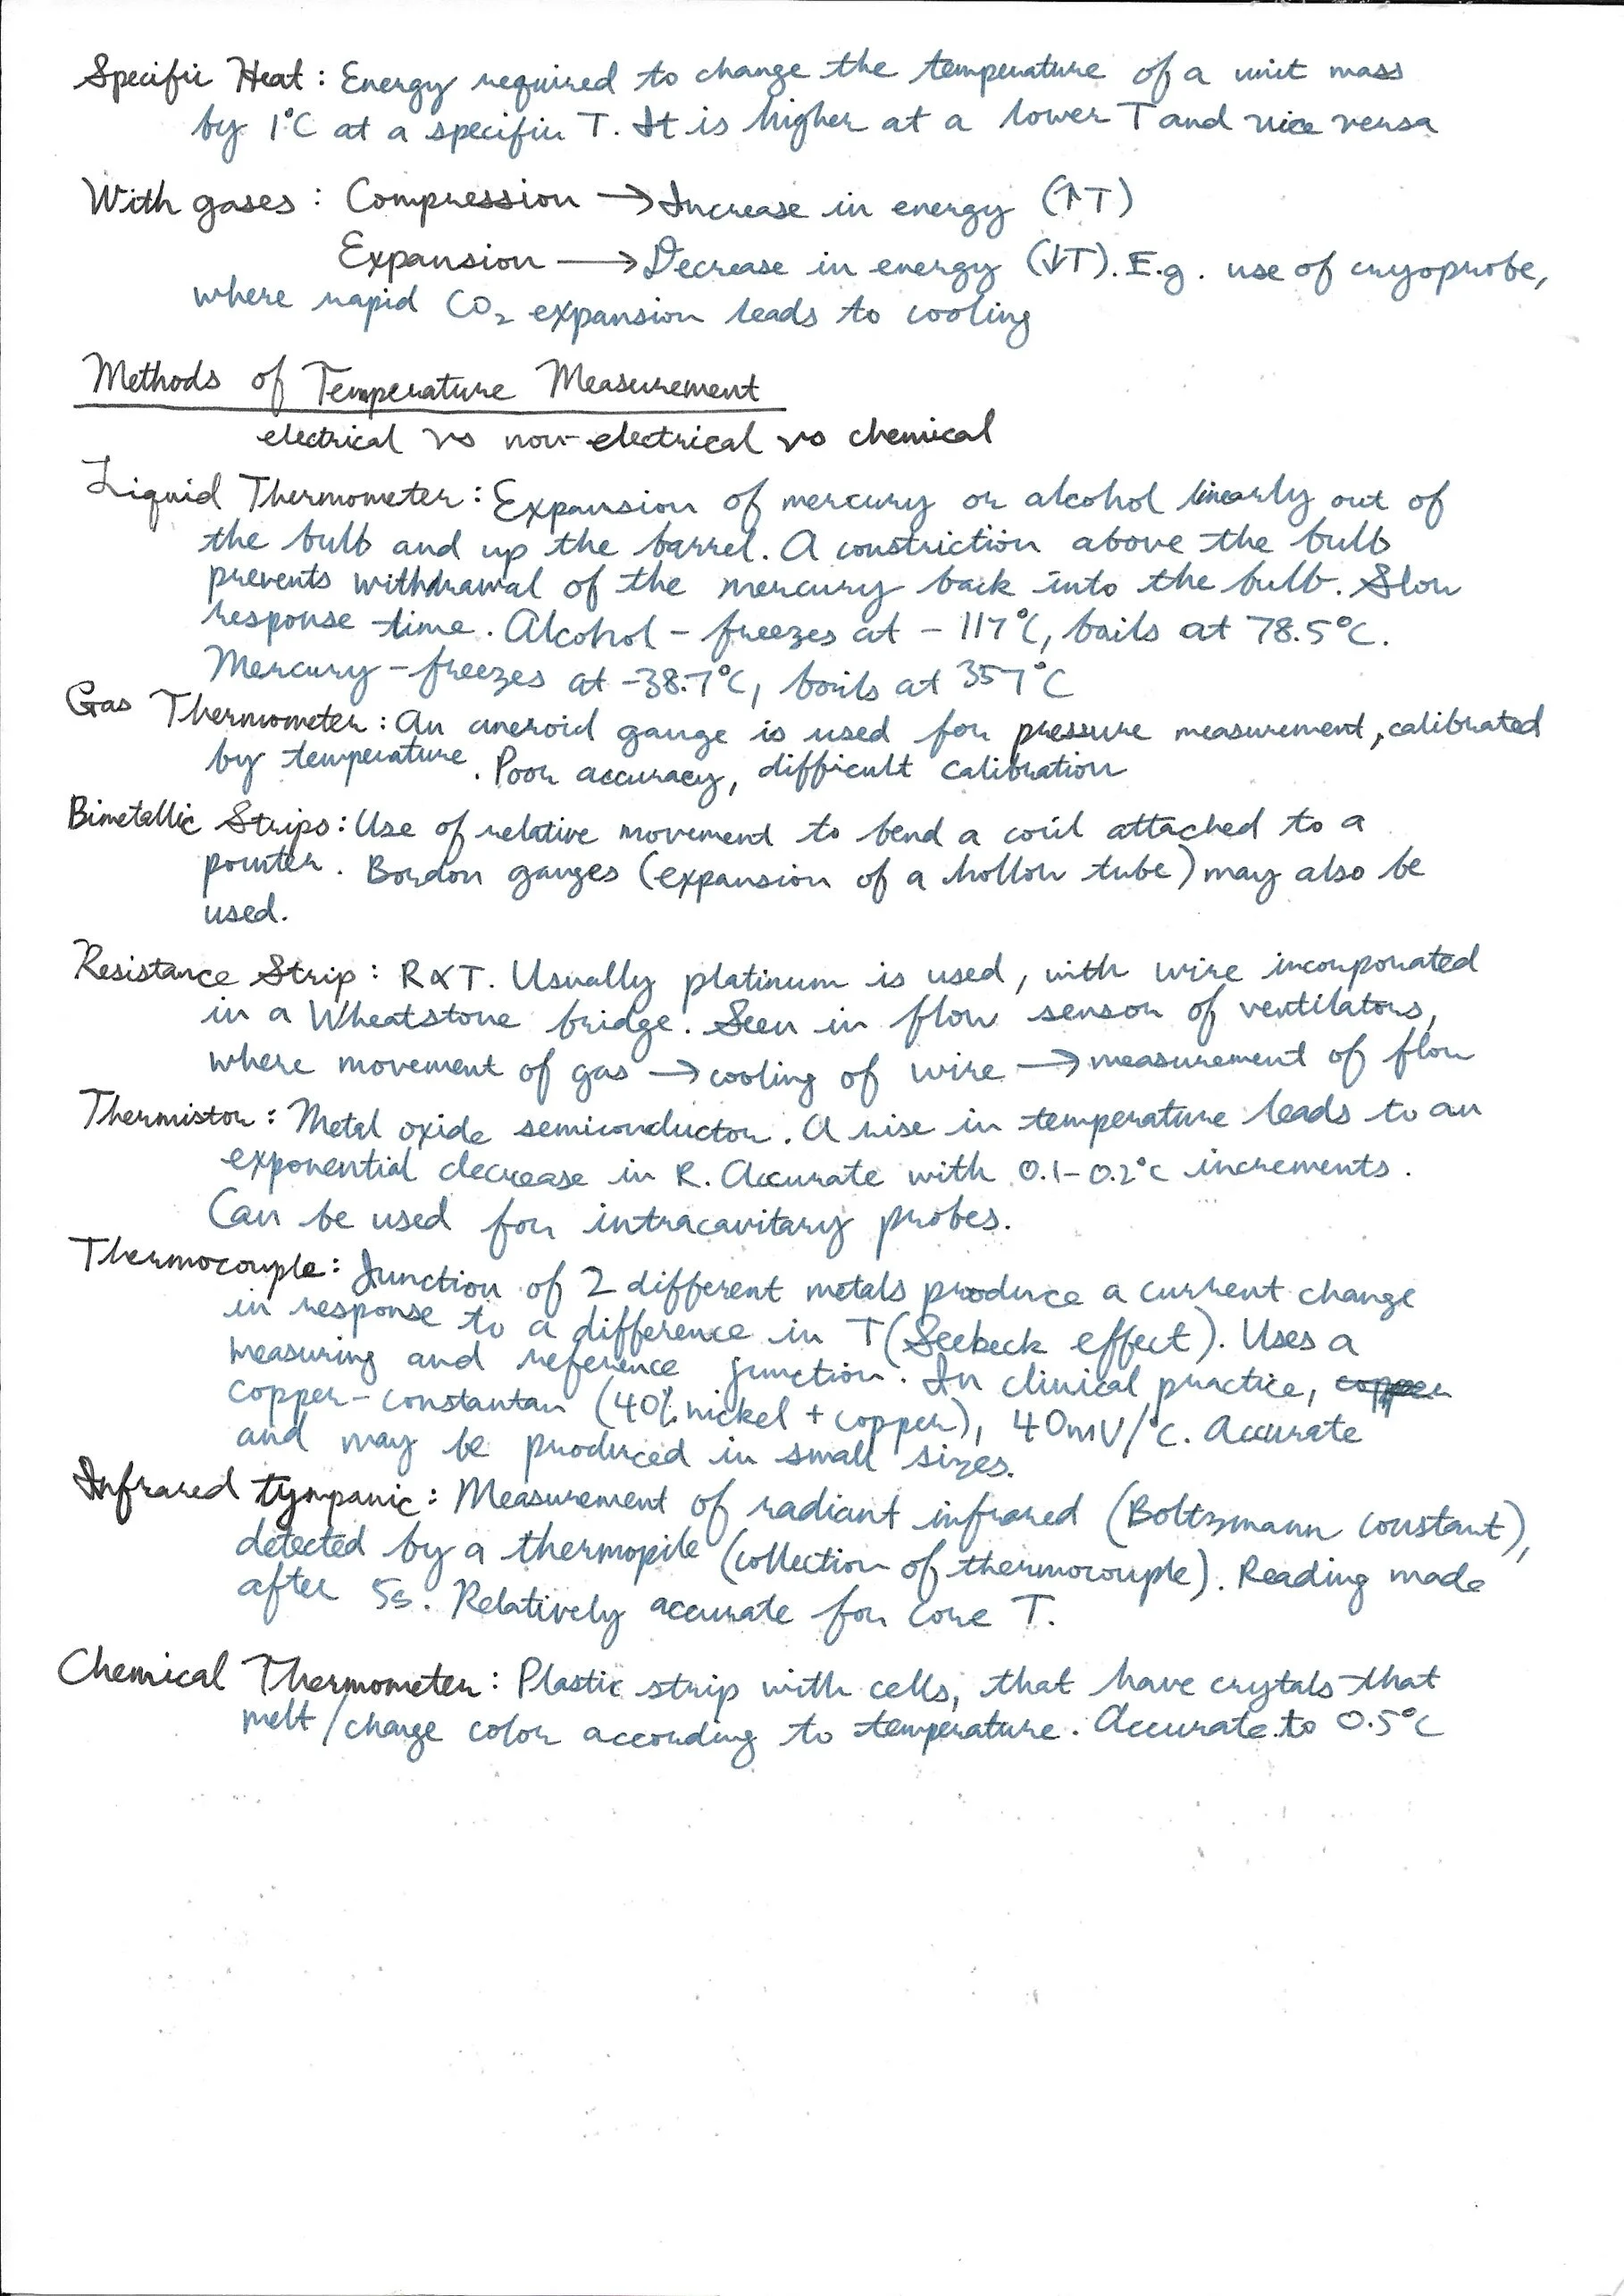 Specific Heat: Energy required to change the temperature of a unit mass
by 1°C at a specific T. It is higher at a lower T and vice versa
With gases: Compression → Increase in energy (↑T)
Expansion → Decrease in energy (↓T). E.g. use of cryoprobe,
where rapid CO₂ expansion leads to cooling
Methods of Temperature Measurement
electrical vs non-electrical vs chemical
Liquid Thermometer: Expansion of mercury or alcohol linearly out of
the bulb and up the barrel. A constriction above the bulb
prevents withdrawal of the mercury back into the bulb. Slow
response time. Alcohol - freezes at -117°C, boils at 78.5°C.
Mercury - freezes at -38.7°C, boils at 357°C
Gas Thermometer: An aneroid gauge is used for pressure measurement, calibrated
by temperature. Poor accuracy, difficult calibration
Bimetallic Strips: Use of relative movement to bend a coil attached to a
pointer. Bordon gauges (expansion of a hollow tube) may also be
used.
Resistance Strip: R∝T. Usually platinum is used, with wire incorporated
in a Wheatstone bridge. Seen in flow sensor of ventilators,
where movement of gas → cooling of wire → measurement of flow
Thermistor: Metal oxide semiconductor. A rise in temperature leads to an
exponential decrease in R. Accurate with 0.1-0.2°C increments.
Can be used for intracavitary probes.
Thermocouple: Junction of 2 different metals produce a current change
in response to a difference in T (Seebeck effect). Uses a
measuring and reference junction. In clinical practice,
copper-constantan (40% nickel + copper), 40mV/°C. Accurate
and may be produced in small sizes.
Infrared tympanic: Measurement of radiant infrared (Boltzmann constant),
detected by a thermopile (collection of thermocouple). Reading made
after 5s. Relatively accurate for core T.
Chemical Thermometer: Plastic strip with cells, that have crytals that
melt/change color according to temperature. Accurate to 0.5°C